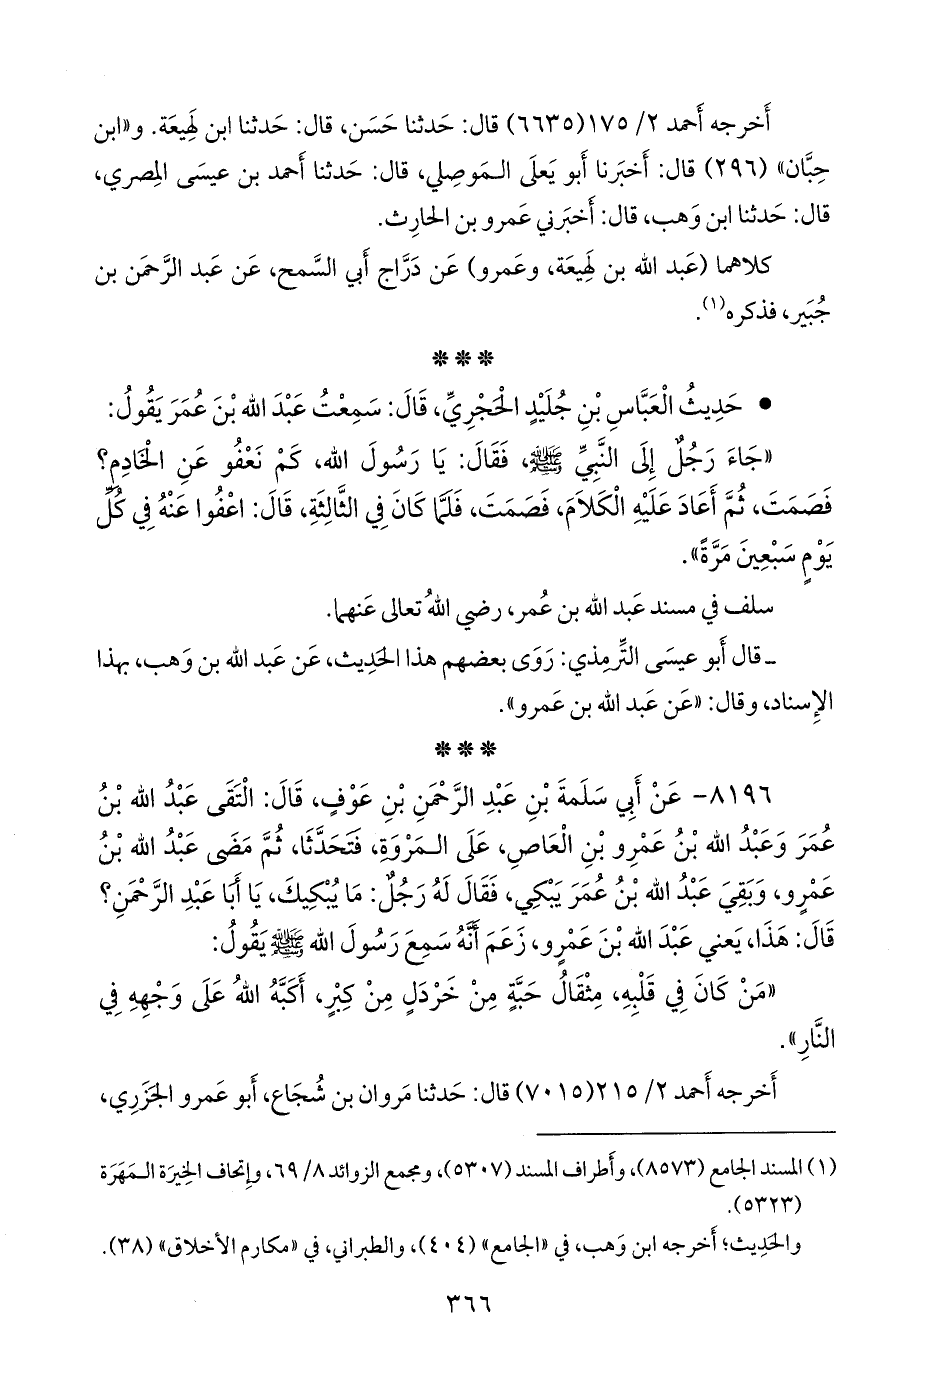 أَخرجه أَحمد ٢/ ١٧٥(٦٦٣٥) قال: حَدثنا حَسَن، قال: حَدثنا ابن لَهِيعَة. و«ابن
حِبَّان» (٢٩٦) قال: أَخبَرنا أَبو يَعلَى الـمَوصِلي، قال: حَدثنا أَحمد بن عيسَى المِصري،
قال: حَدثنا ابن وَهب، قال: أَخبَرني عَمرو بن الحارِث.
كلاهما (عَبد الله بن لَهِيعَة، وعَمرو) عَن دَرَّاج أَبي السَّمح، عَن عَبد الرَّحمَن بن
جُبَير، فذكره(١).
***
• حَدِيثُ الْعَبَّاسِ بْنِ جُلَيْدٍ الْحَجْرِيِّ، قَالَ: سَمِعْتُ عَبْدَ الله بْنَ عُمَرَ يَقُولُ:
«جَاءَ رَجُلٌ إِلَى النَّبِيِّ ﷺ، فَقَالَ: يَا رَسُولَ الله، كَمْ نَعْفُو عَنِ الْخَادِمِ؟
فَصَمَتَ، ثُمَّ أَعَادَ عَلَيْهِ الْكَلَامَ، فَصَمَتَ، فَلَمَّا كَانَ فِي الثَّالِثَةِ، قَالَ: اعْفُوا عَنْهُ فِي كُلِّ
يَوْمٍ سَبْعِينَ مَرَّةً».
سلف في مسند عَبد الله بن عُمر، رضي اللهُ تعالى عَنهما.
ـ قال أَبو عيسَى التِّرمِذي: رَوَى بعضهم هذا الحَدِيث، عَن عَبد الله بن وَهب، بهذا
الإِسناد، وقال: «عَن عَبد الله بن عَمرو».
***
٨١٩٦- عَنْ أَبِي سَلَمَةَ بْنِ عَبْدِ الرَّحْمَنِ بْنِ عَوْفٍ، قَالَ: الْتَقَى عَبْدُ الله بْنُ
عُمَرَ وَعَبْدُ الله بْنُ عَمْرِو بْنِ الْعَاصِ، عَلَى الـمَرْوَةِ، فَتَحَدَّثَا، ثُمَّ مَضَى عَبْدُ الله بْنُ
عَمْرٍو، وَبَقِيَ عَبْدُ الله بْنُ عُمَرَ يَبْكِي، فَقَالَ لَهُ رَجُلٌ: مَا يُبْكِيكَ، يَا أَبَا عَبْدِ الرَّحْمَنِ؟
قَالَ: هَذَا، يَعني عَبْدَ الله بْنَ عَمْرٍو، زَعَمَ أَنَّهُ سَمِعَ رَسُولَ الله ﷺ يَقُولُ:
«مَنْ كَانَ فِي قَلْبِهِ، مِثْقَالُ حَبَّةٍ مِنْ خَرْدَلٍ مِنْ كِبْرٍ، أَكَبَّهُ اللهُ عَلَى وَجْهِهِ فِي
النَّارِ».
أَخرجه أَحمد ٢/ ٢١٥(٧٠١٥) قال: حَدثنا مَروان بن شُجَاع، أَبو عَمرو الجَزَري،
(١) المسند الجامع (٨٥٧٣)، وأَطراف المسند (٥٣٠٧)، ومجمع الزوائد ٨/ ٦٩، وإِتحاف الخِيرَة الـمَهَرَة
(٥٣٢٣).
والحَدِيث؛ أَخرجه ابن وَهب، في «الجامع» (٤٠٤)، والطبراني، في «مكارم الأخلاق» (٣٨).
٣٦٦